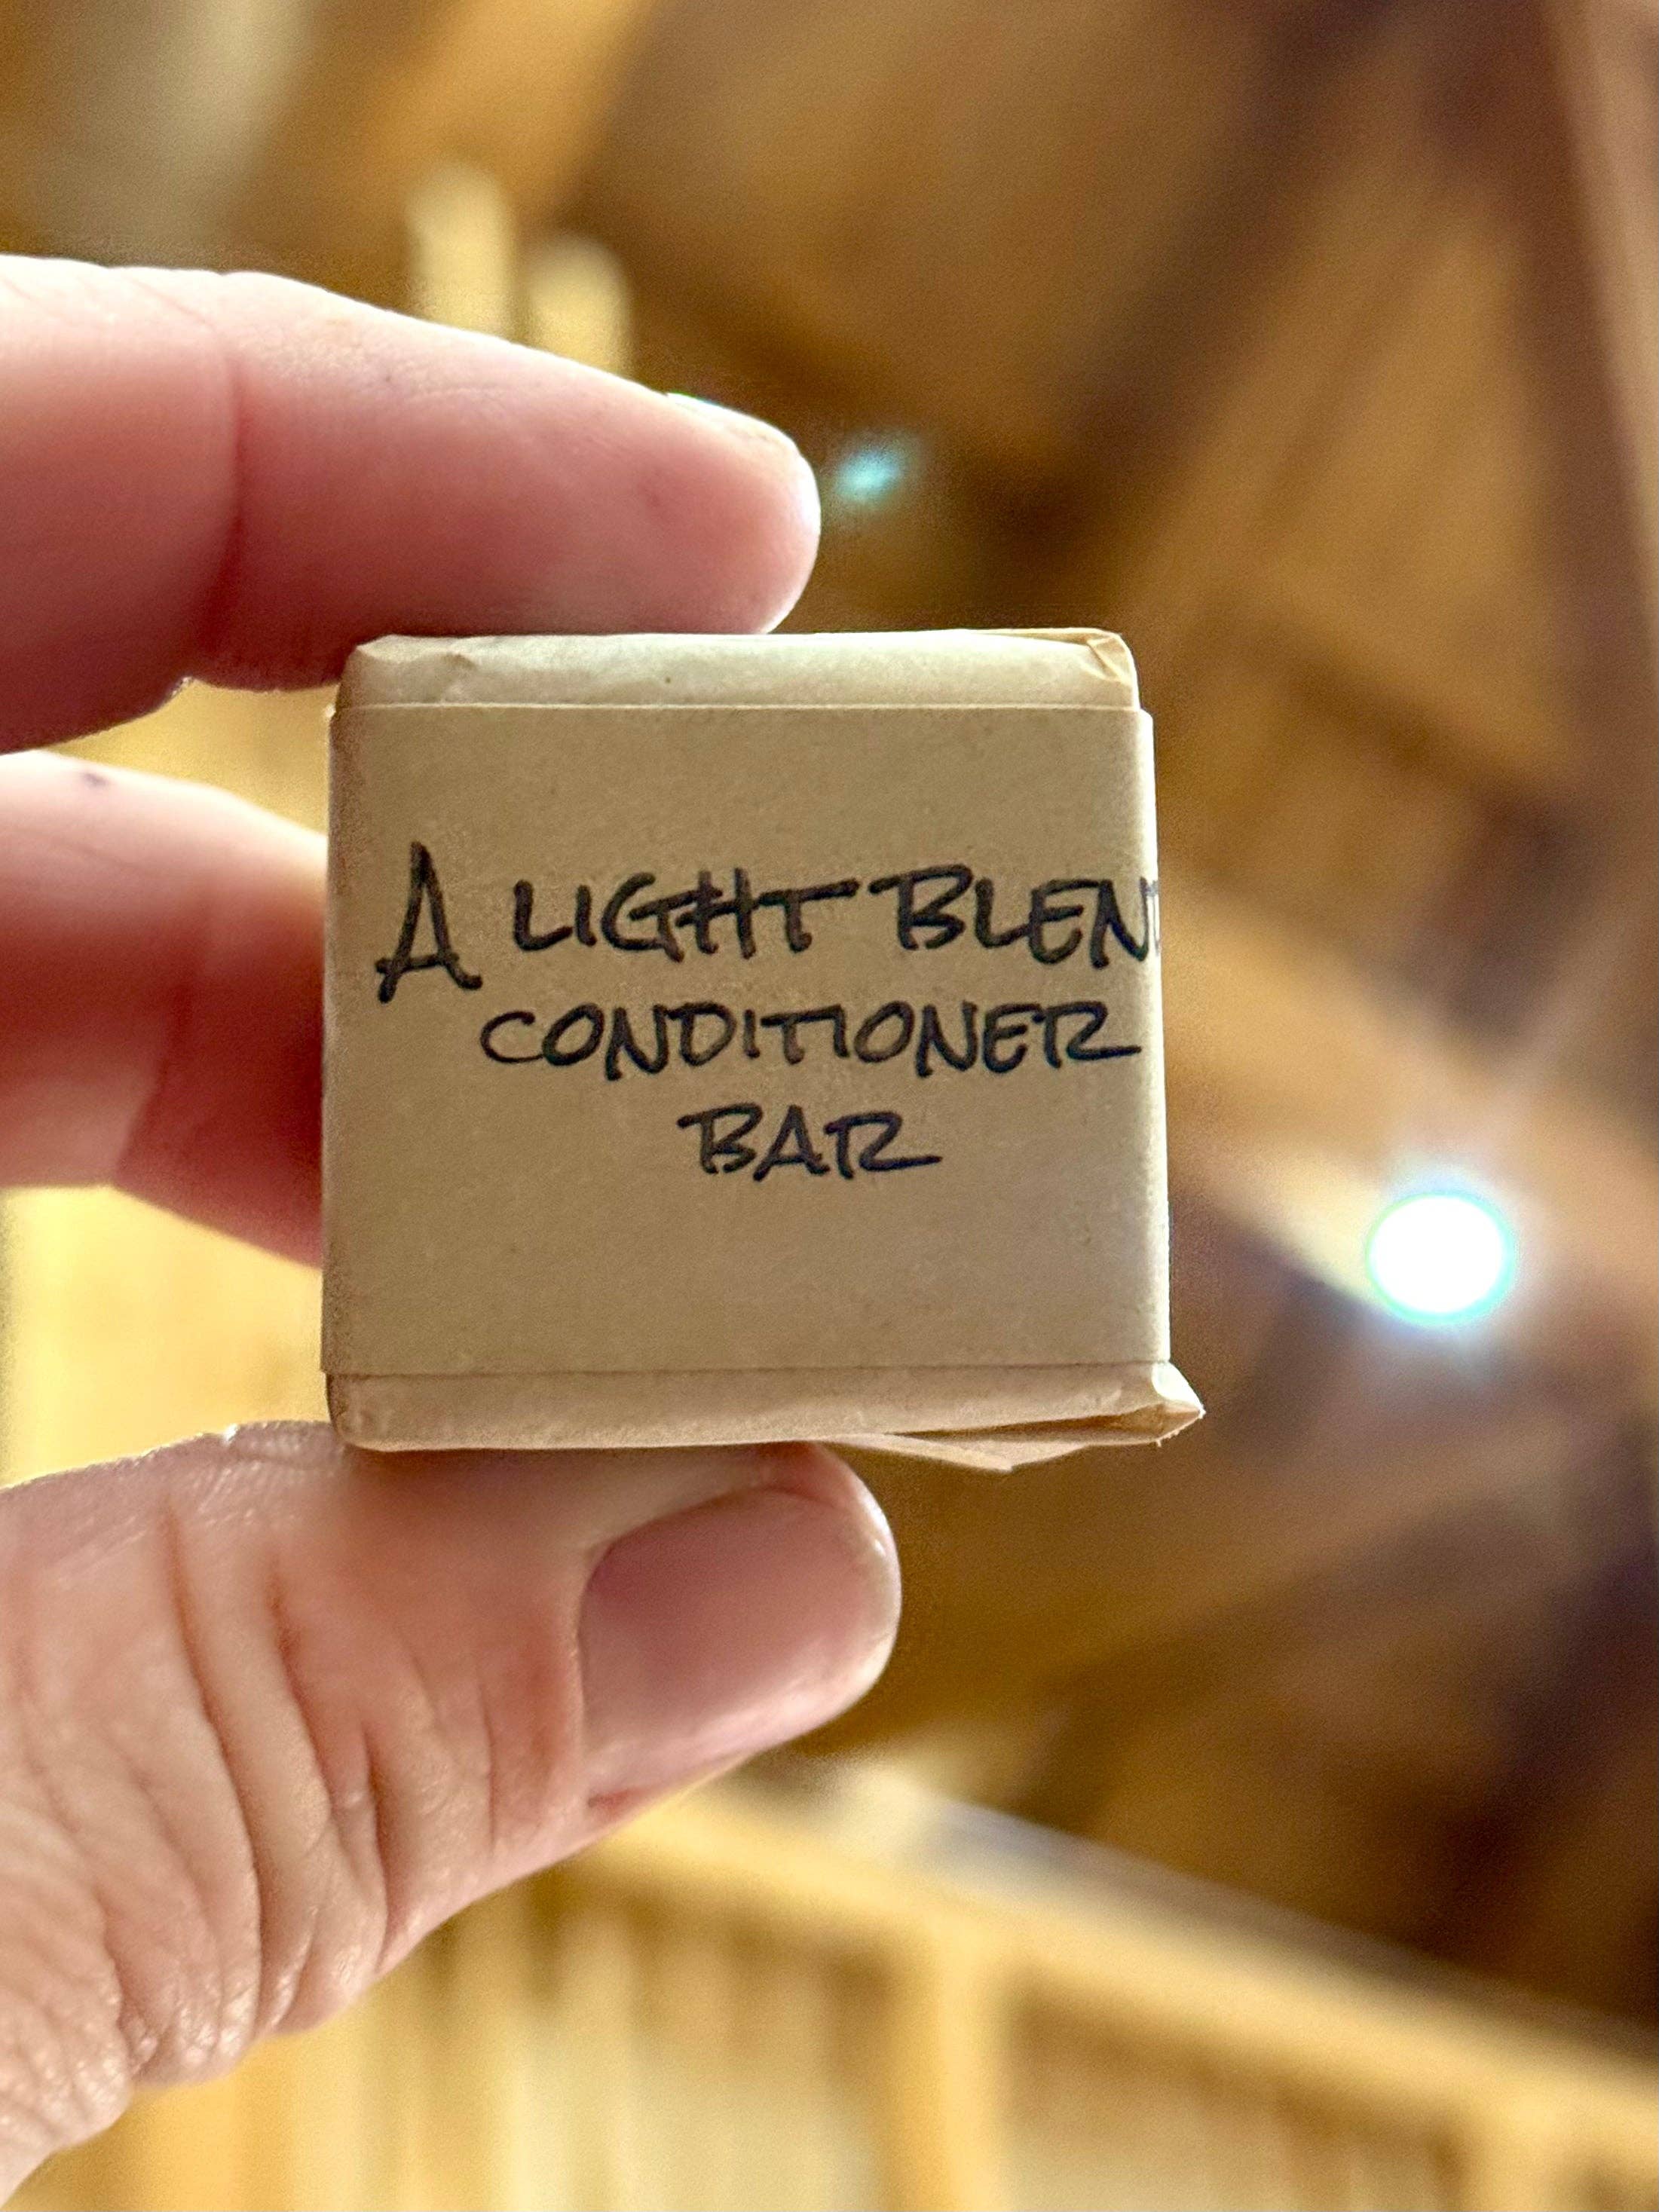 A LIGHT BLEND
CONDITIONER
BAR